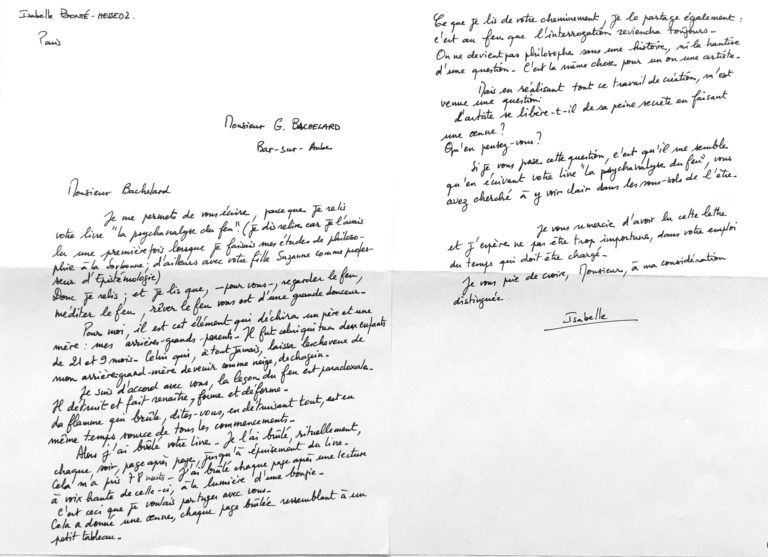 Isabelle BONTÉ-HESSED2.
Paris
Monsieur G. BACHELARD
Bar-sur-Aube
Monsieur Bachelard
Je me permets de vous écrire, parce que je relis
votre livre "la psychanalyse du feu" (je dis relire car je l'avais
lu une première fois lorsque je faisais mes études de philoso-
phie à la Sorbonne; d'ailleurs avec votre fille Suzanne comme profes-
seur d'Épistémologie)
Donc je relis; et je lis que, - pour vous -, regarder le feu,
méditer le feu, rêver le feu vous est d'une grande douceur.
Pour moi, il est cet élément qui déchira un père et une
mère: mes arrières-grands-parents. Il fut celui qui tua deux enfants
de 21 et 9 mois. Celui qui, à tout jamais, laissa les cheveux de
mon arrière-grand-mère devenir comme neige, de chagrin.
Je suis d'accord avec vous, la leçon du feu est paradoxale.
Il détruit et fait renaître, forme et déforme.
La flamme qui brûle, dites-vous, en détruisant tout, est en
même temps source de tous les commencements.
Alors j'ai brûlé votre livre. Je l'ai brûlé, rituellement,
chaque soir, page après page, jusqu'à épuisement du livre.
Cela m'a pris 78 nuits. J'ai brûlé chaque page après une lecture
à voix haute de celle-ci, à la lumière d'une bougie.
C'est ceci que je voulais partager avec vous.
Cela a donné une œuvre, chaque page brûlée ressemblant à un
petit tableau.
Ce que je lis de votre cheminement, je le partage également:
c'est au feu que l'interrogation reviendra toujours.
On ne devient pas philosophe sans une histoire, ni la hantise
d'une question. C'est la même chose pour un ou une artiste.
Mais en réalisant tout ce travail de création, m'est
venue une question:
L'artiste se libère-t-il de sa peine secrète en faisant
une œuvre?
Qu'en pensez-vous?
Si je vous pose cette question, c'est qu'il me semble
qu'en écrivant votre livre "la psychanalyse du feu", vous
avez cherché à y voir clair dans les sous-sols de l'être.
Je vous remercie d'avoir lu cette lettre
et j'espère ne pas être trop importune, dans votre emploi
du temps qui doit être chargé.
Je vous prie de croire, Monsieur, à ma considération
distinguée.
Isabelle